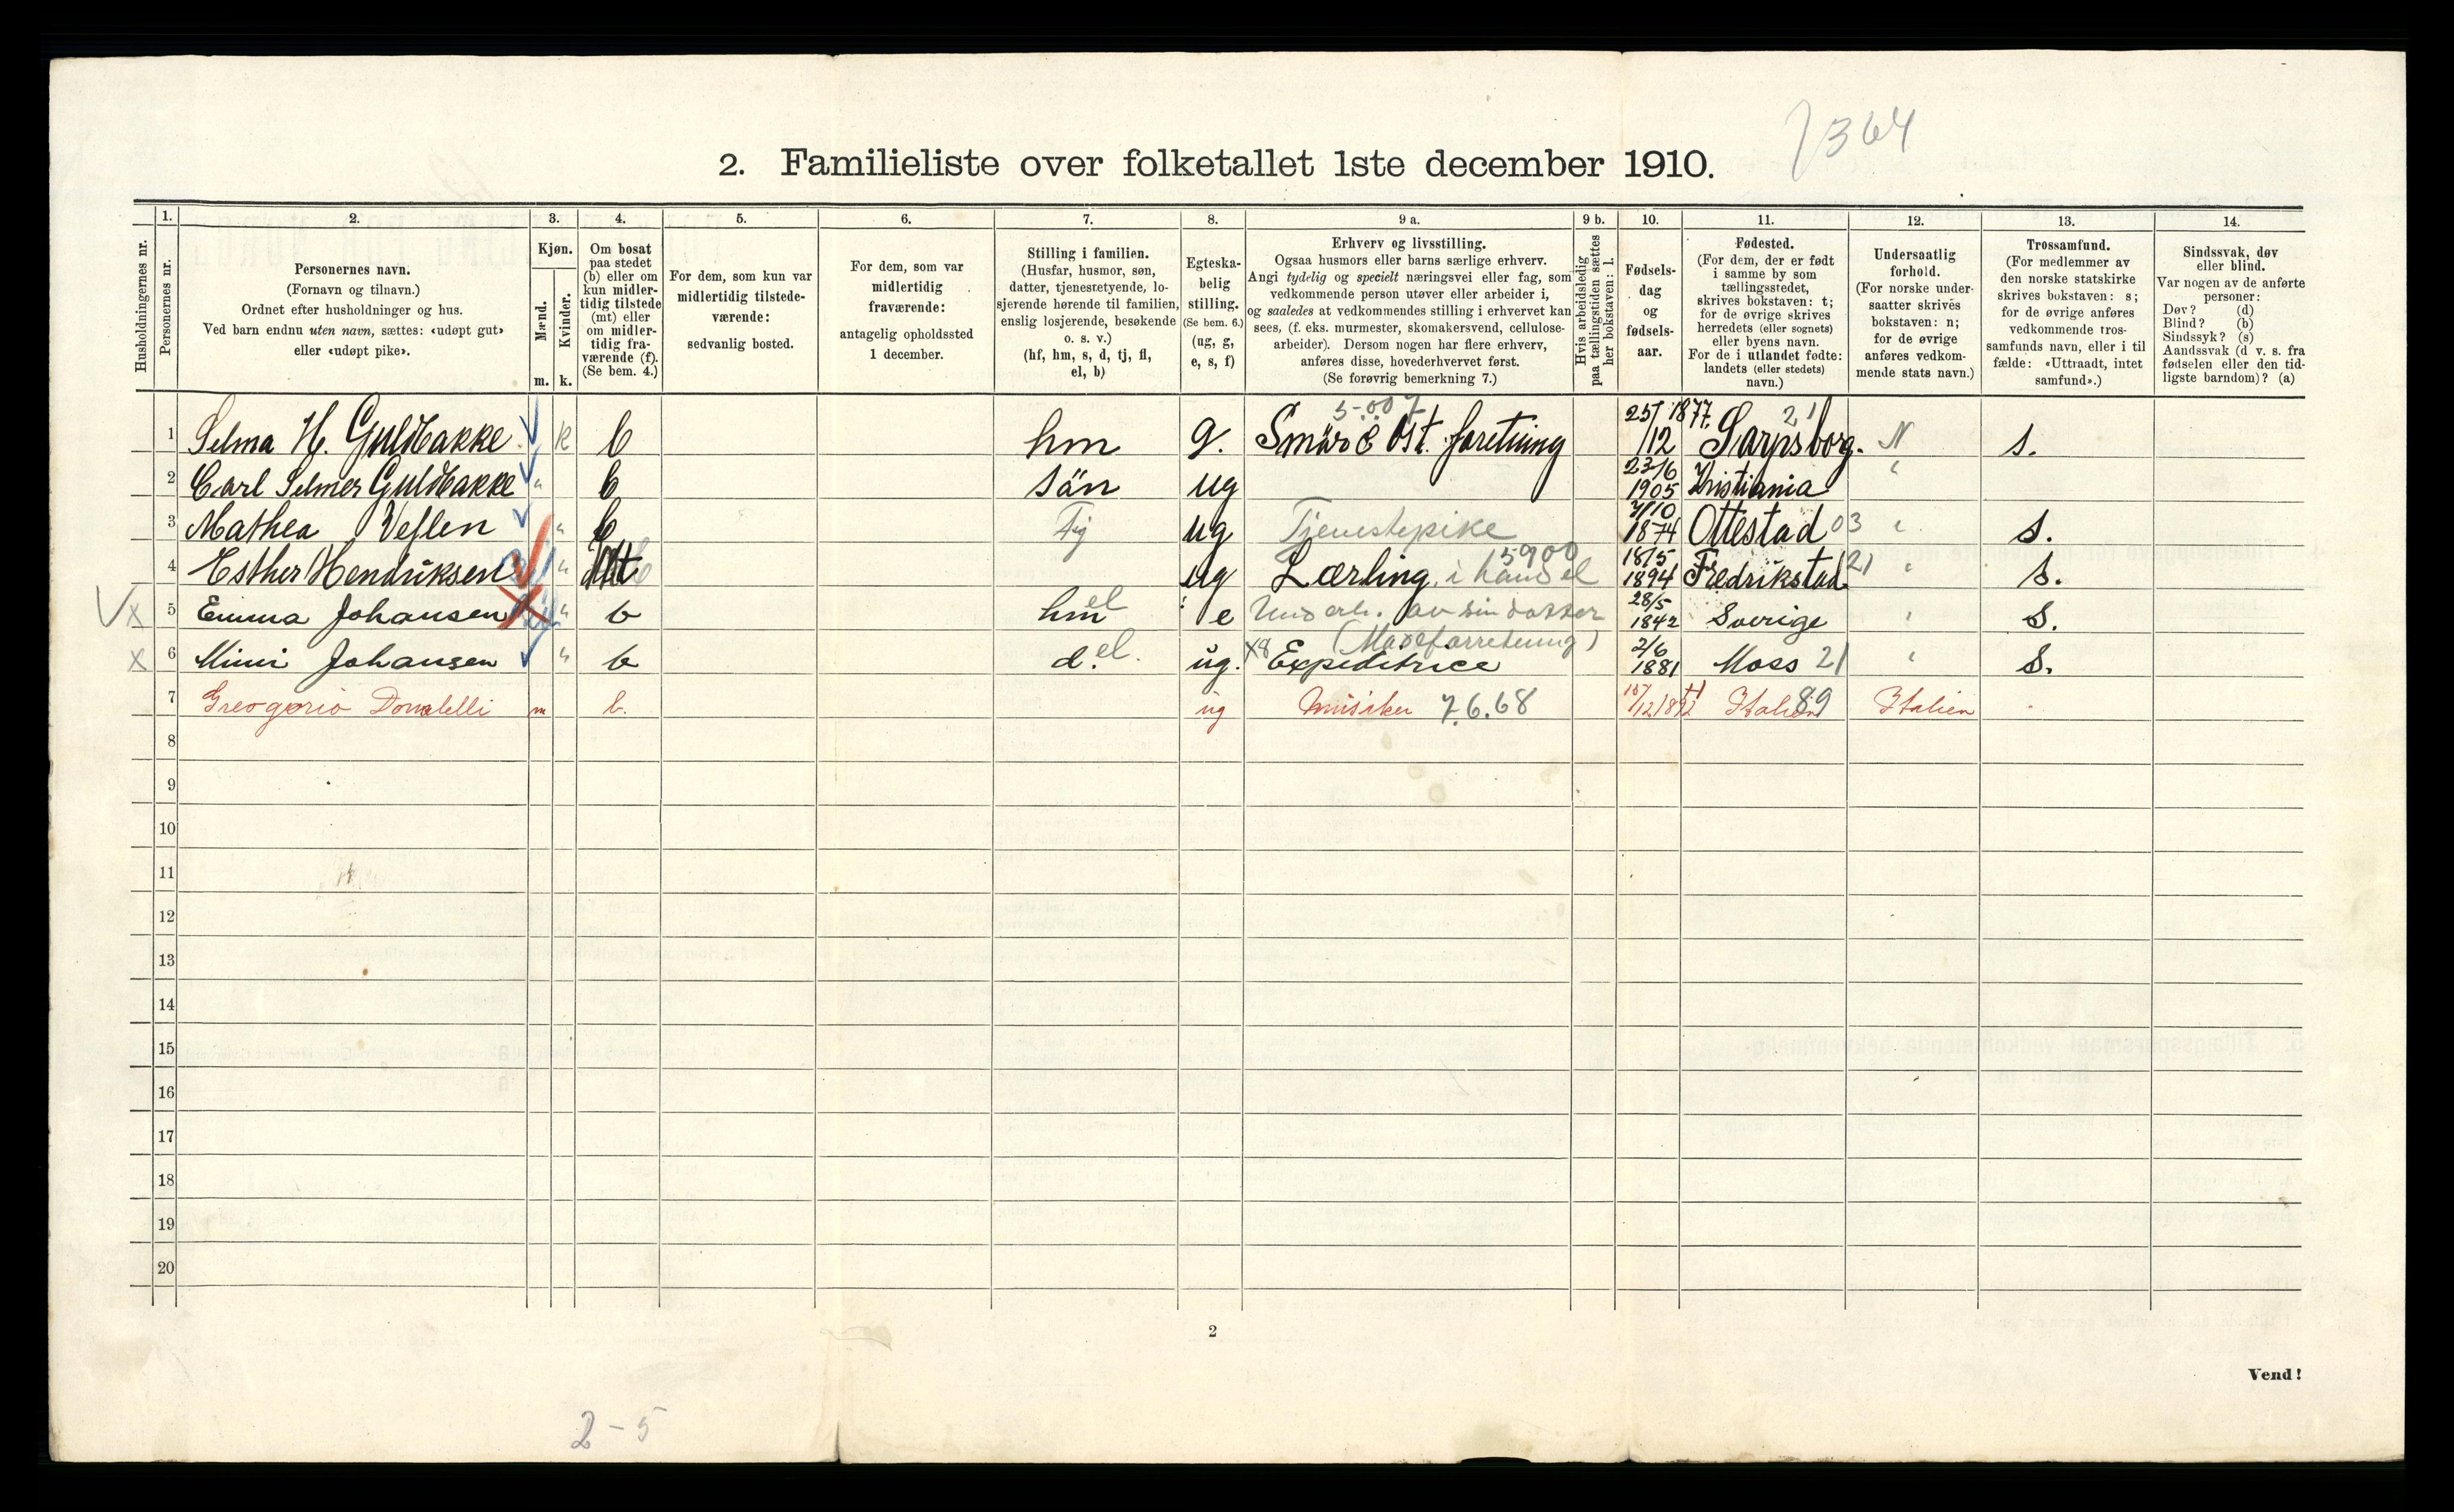 7364
2. Familieliste over folketallet 1ste december 1910.
1. 2. 3. 4. 5. 6. 7. 8. 9 a. 9 b. 10. 11. 12. 13. 14.
Husholdningernes nr.
Personernes nr.
Personernes navn.
(Fornavn og tilnavn.)
Ordnet efter husholdninger og hus.
Ved barn endnu uten navn, sættes: «udøpt gut»
eller «udøpt pike».
Kjøn.
Mænd.
Kvinder.
m. k.
Om bosat
paa stedet
(b) eller om
kun midler-
tidig tilstede
(mt) eller
om midler-
tidig fra-
værende (f).
(Se bem. 4.)
For dem, som kun var
midlertidig tilstede-
værende:
sedvanlig bosted.
For dem, som var
midlertidig
fraværende:
antagelig opholdssted
1 december.
Stilling i familien.
(Husfar, husmor, søn,
datter, tjenestetyende, lo-
sjerende hørende til familien,
enslig losjerende, besøkende
o. s. v.)
(hf, hm, s, d, tj, fl,
el, b)
Egteska-
belig
stilling.
(Se bem. 6.)
(ug, g,
e, s, f)
Erhverv og livsstilling.
Ogsaa husmors eller barns særlige erhverv.
Angi tydelig og specielt næringsvei eller fag, som
vedkommende person utøver eller arbeider i,
og saaledes at vedkommendes stilling i erhvervet kan
sees, (f. eks. murmester, skomakersvend, cellulose-
arbeider). Dersom nogen har flere erhverv,
anføres disse, hovederhvervet først.
(Se forøvrig bemerkning 7.)
Hvis arbeidsledig
paa tællingstiden sættes
her bokstaven: l.
Fødsels-
dag
og
fødsels-
aar.
Fødested.
(For dem, der er født
i samme by som
tællingsstedet,
skrives bokstaven: t;
for de øvrige skrives
herredets (eller sognets)
eller byens navn.
For de i utlandet fødte:
landets (eller stedets)
navn.)
Undersaatlig
forhold.
(For norske under-
saatter skrives
bokstaven: n;
for de øvrige
anføres vedkom-
mende stats navn.)
Trossamfund.
(For medlemmer av
den norske statskirke
skrives bokstaven: s;
for de øvrige anføres
vedkommende tros-
samfunds navn, eller i til
fælde: «Uttraadt, intet
samfund».)
Sindssvak, døv
eller blind.
Var nogen av de anførte
personer:
Døv? (d)
Blind? (b)
Sindssyk? (s)
Aandssvak (d v. s. fra
fødselen eller den tid-
ligste barndom)? (a)
1 Selma H. Guldbakke k b hm g. Smör & Ost. foretning 25/12 1877. Sarpsborg. 21 N s.
2 Carl Selmer Guldbakke " b sän ug 23/6 1905 Kristiania "
3 Mathea Veflen " b Tj ug Tjenestepike 7/10 1874 Ottestad 03 " s.
4 Esther Hendriksen " Mt b ug Lærling i handel 5900 18/5 1894 Fredrikstad 21 " s.
x 5 Emma Johansen " b hm el e Underh. av sin datter 28/5 1842 Sverige " s.
x 6 Mimi Johansen " b d. el. ug. x8 Expeditrice 2/6 1881 Moss 21 " s.
7 Greogorio Donatelli m b. ug Musiker 7.6.68 Italien 89 Italien
8
9
10
11
12
13
14
15
16
17
18
19
20
2
Vend!
2-5